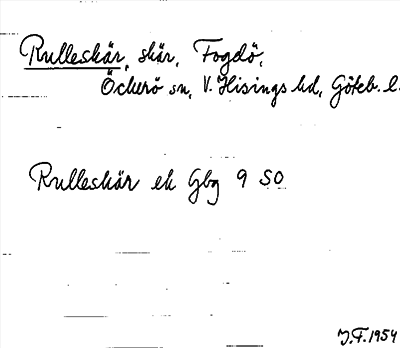 Rulleskär, skär, Fogdö,
Öckerö sn, V. Hisings hd, Göteb. l.
Rulleskär ek Gbg 9 SO
J.F. 1954